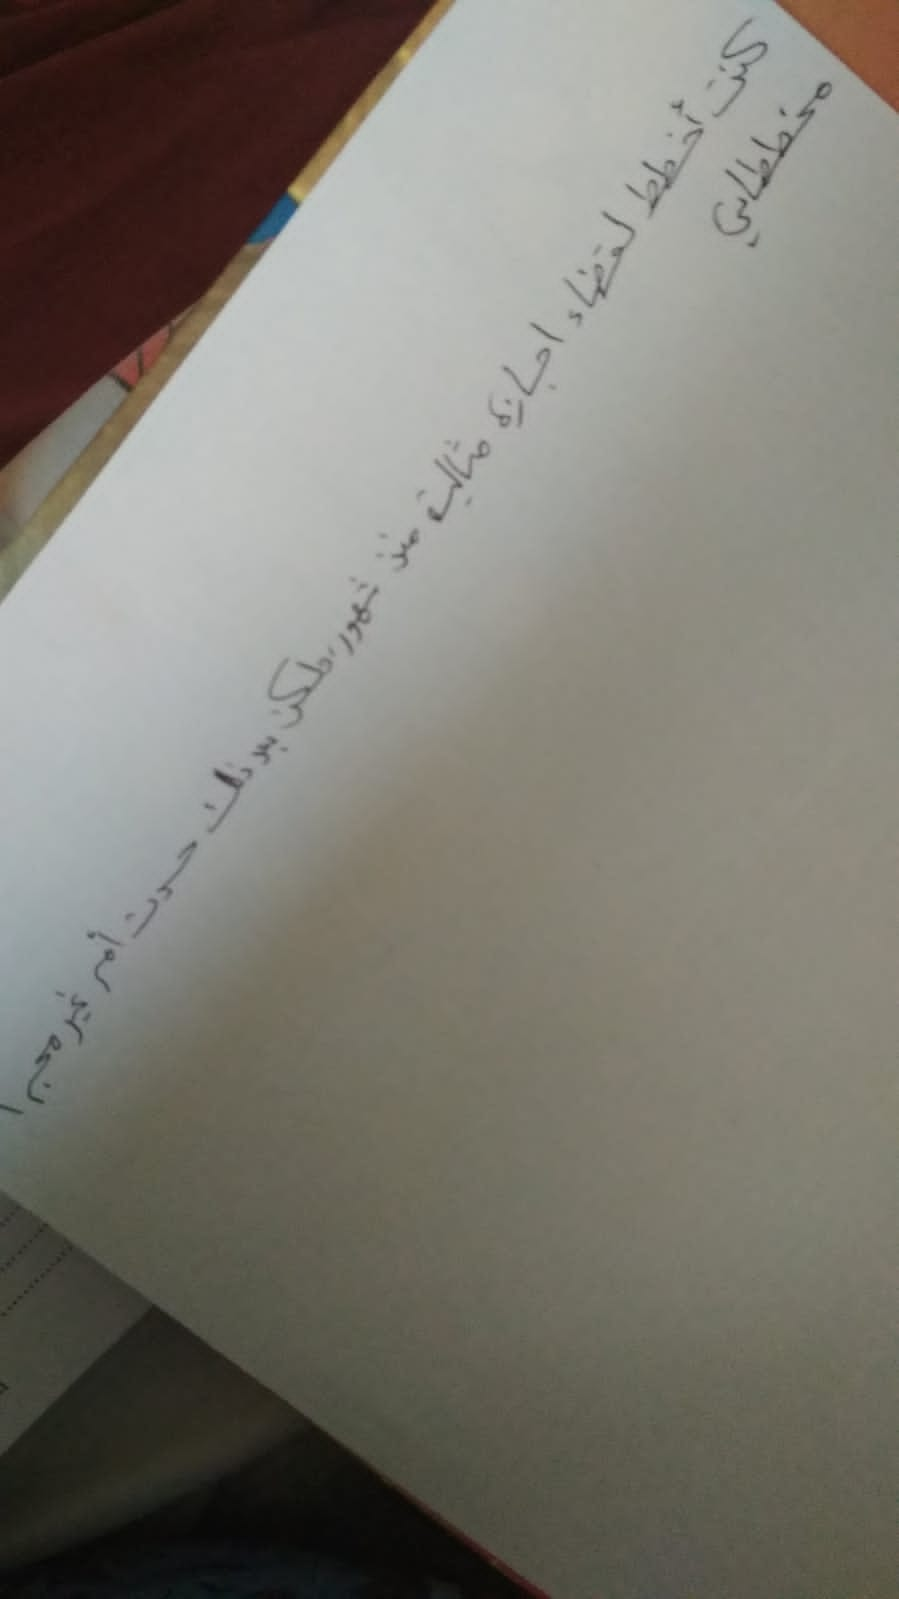 كنت أخطط لقضاء اجازة مثالية منذ شهور، ولكن بعد ذلك حدث أمر غير جميع
مخططاتي